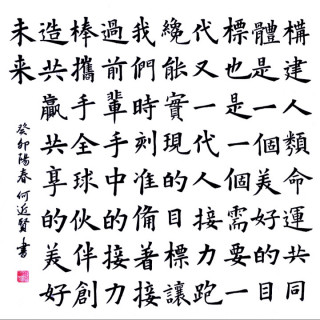 構建人類命運共同
體是一個美好的目
標也是一個需要一
代又一代人接力跑
纔能實現的目標讓
我們時刻准備着接
過前輩手中的接力
棒攜手全球伙伴創
造共贏共享的美好
未来
癸卯陽春何近賢書